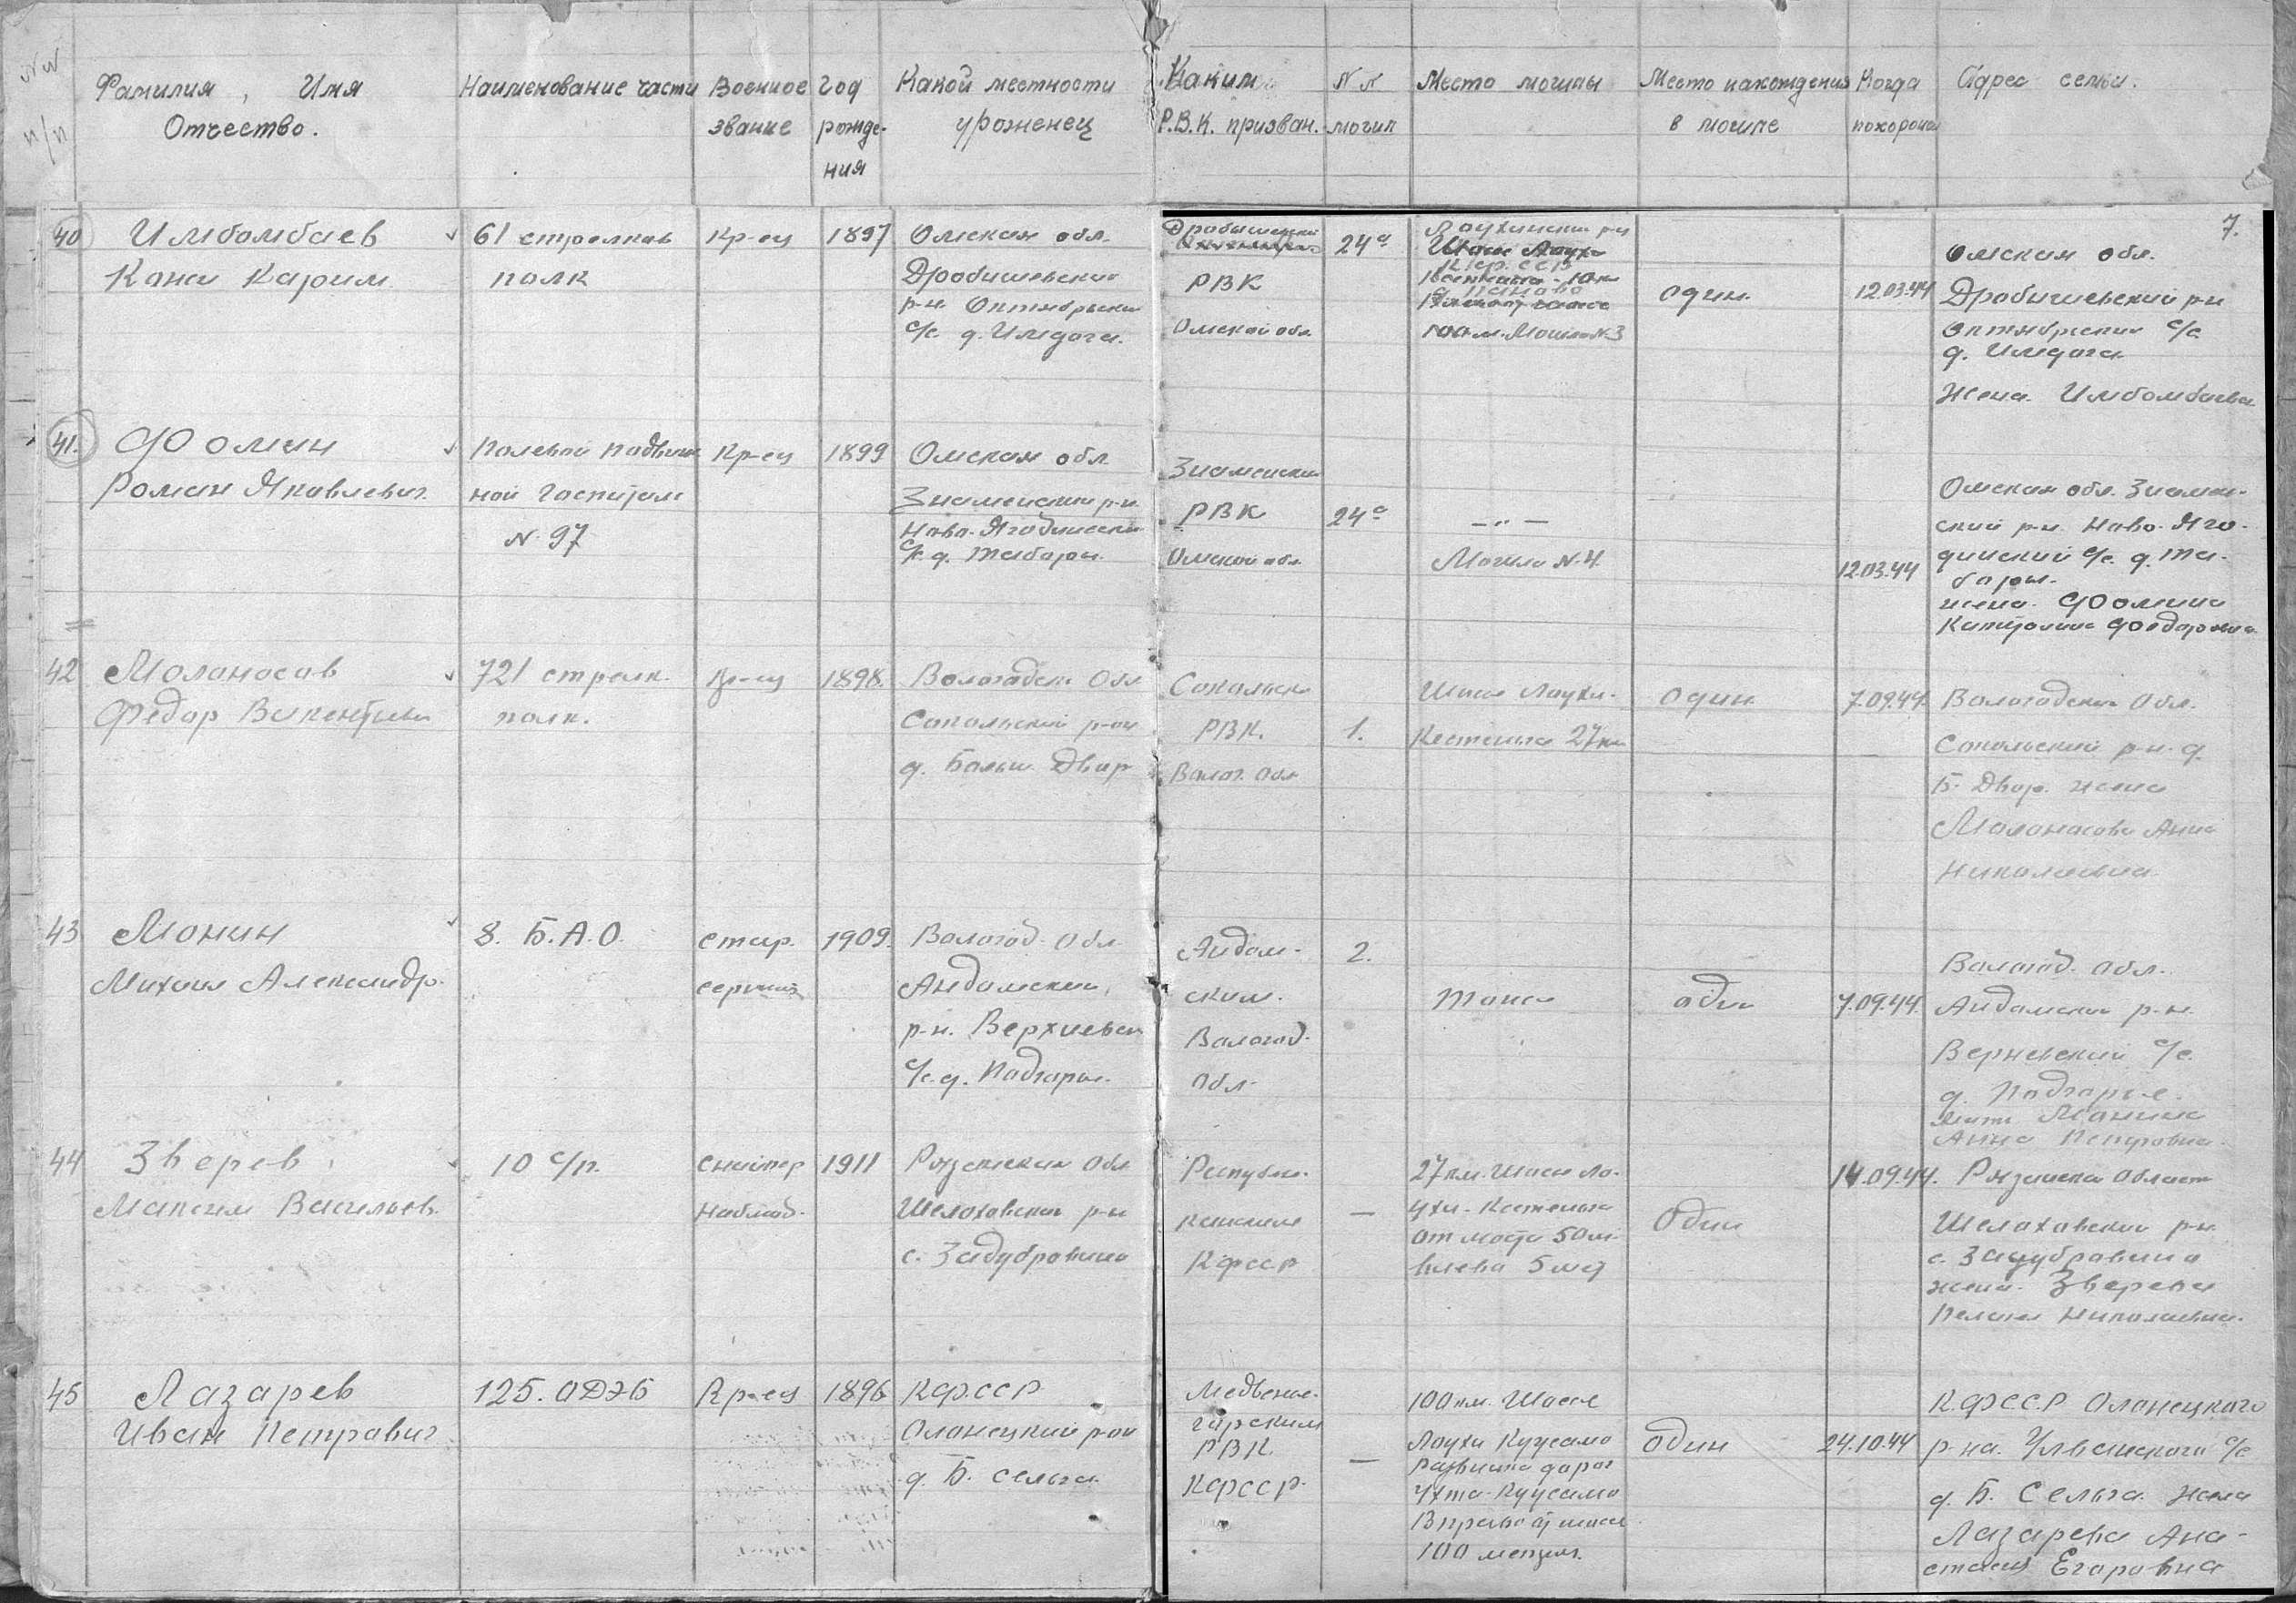 NN п/п
Фамилия, Имя Отчество.
Наименование части
Военное звание
Год рождения
Какой местности уроженец
Каким Р.В.К. призван.
N N могил
Место могилы
Место нахождения в могиле
Когда похоронен
Адрес семьи.
7.
40
Имбомбаев
Кани Карим
61 стрелков
полк
Кр-ец
1897
Омская обл.
Дробышевский
р-н Октябрьский
с/с. д. Имдога.
Дробышевский
РВК
Омской обл.
24а
Лоухский р-н
100 м. Могила N.3
один.
12.03.44
Омская обл.
Дробышевский р-н
Октябрьский с/с
д. Имдога
Жена. Имбомбаева
41.
Фомин
Роман Яковлевич.
Полевой подвиж
ной госпиталь
N. 97
Кр-ец
1899
Омская обл
Знаменский р-н.
Ново-Ягодинский
с/с. д. Таборы.
Знаменским
РВК
Омской обл.
24а
— " —
Могила N.4.
12.03.44
Омская обл. Знамен-
ский р-н. Ново-Яго-
динский с/с. д. Та-
боры.
жена. Фомина
Федоровна
42
Молоносов
Федор Викентьев
721 стрелк.
полк.
Кр-ец
1898.
Вологодск. Обл
Сокольский р-он
д. Больш. Двор
Сокольск
РВК.
Волог. обл
1.
Шоссе Лоухи-
Кестеньга 27км
один.
7.09.44.
Вологодская Обл.
Сокольский р-н. д.
Б. Двор. жена
Молоносова Анна
Николаевна
43
Монин
Михаил Александр.
8. Б.А.О.
стар.
сержант
1909.
Вологод. Обл
Андомский
р-н. Верхневск
с/с. д. Подгорье.
Андом-
ским.
Вологод.
обл.
2.
Тоже
один
7.09.44.
Вологод. обл.
Андомский р-н.
Верневский с/с.
д. Подгорье.
Мать Монина
Анна Петровна.
44
Зверев
Максим Васильев.
10 с/п.
Снайпер
наблюд.
1911
Рязанская обл
Шелоховский р-н
с. Задубровино
Республи-
канским
КФССР
—
27 км. шоссе Ло-
ухи-Кестеньга
от моста 50 м.
влево 5 мет
один
14.09.44.
Рязанская Област
Шелоховский р-н.
с. Задубровино
жена. Зверева
Николаевна.
45
Лазарев
Иван Петрович
125. ОДЭБ
Кр-ец
1896
КФССР
Олонецкий р-он
д. Б. Сельга.
Медвежье-
горским
РВК
КФССР.
—
100 км. Шоссе
Лоухи Куусамо
Развилка дорог
Ухта-Куусамо
Вправо от шоссе
100 метров.
один
24.10.44
К.ФССР Олонецкого
р-на. Ульванского с/с
д. Б. Сельга. Жена
Лазарева Ана-
стасия Егоровна